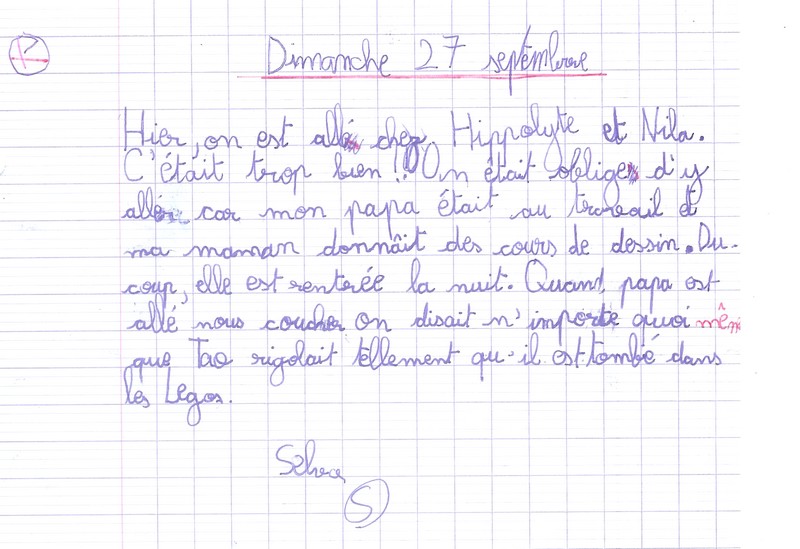 Dimanche 27 septembre
Hier, on est allés chez Hippolyte et Nila.
C'était trop bien !! On était obliges d'y
aller car mon papa était au travail et
ma maman donnâit des cours de dessin. Du
coup, elle est rentrée la nuit. Quand, papa est
allé nous coucher on disait n'importe quoi mêm
que Tao rigolait tellement qu'il est tombé dans
les Legos.
S